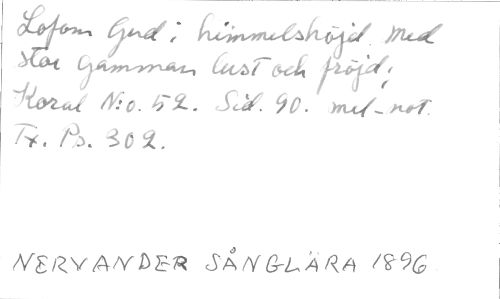 Lofom Gud i himmelshöjd. Med
stor gamman lust och fröjd;
Koral N:o. 52. Sid. 90. mel-not.
Tx. Ps. 302.
NERVANDER SÅNGLÄRA 1896